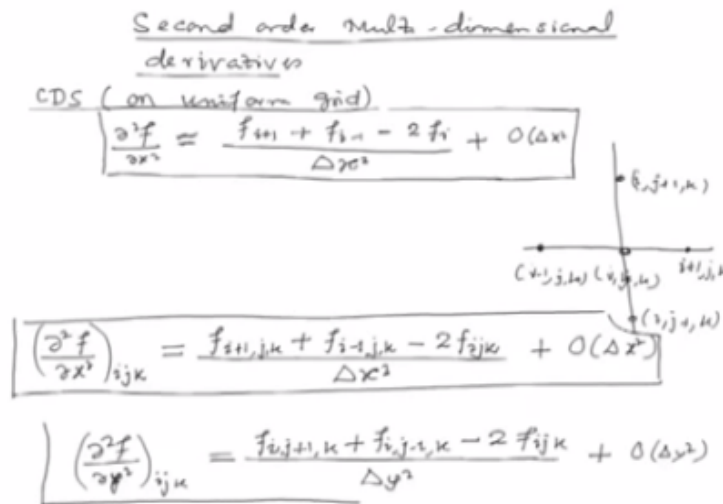 Second order Multi-dimensional
derivatives
CDS (on uniform grid)
∂²f/∂x² = (f_{i+1} + f_{i-1} - 2 f_i)/Δx² + O(Δx²
(i,j+1,k)
(i-1,j,k) (i,j,k) i+1,j,k
(i,j-1,k)
(∂²f/∂x²)_{ijk} = (f_{i+1,j,k} + f_{i-1,j,k} - 2f_{ijk})/Δx² + O(Δx²)
(∂²f/∂y²)_{ijk} = (f_{i,j+1,k} + f_{i,j-1,k} - 2 f_{ijk})/Δy² + O(Δy²)